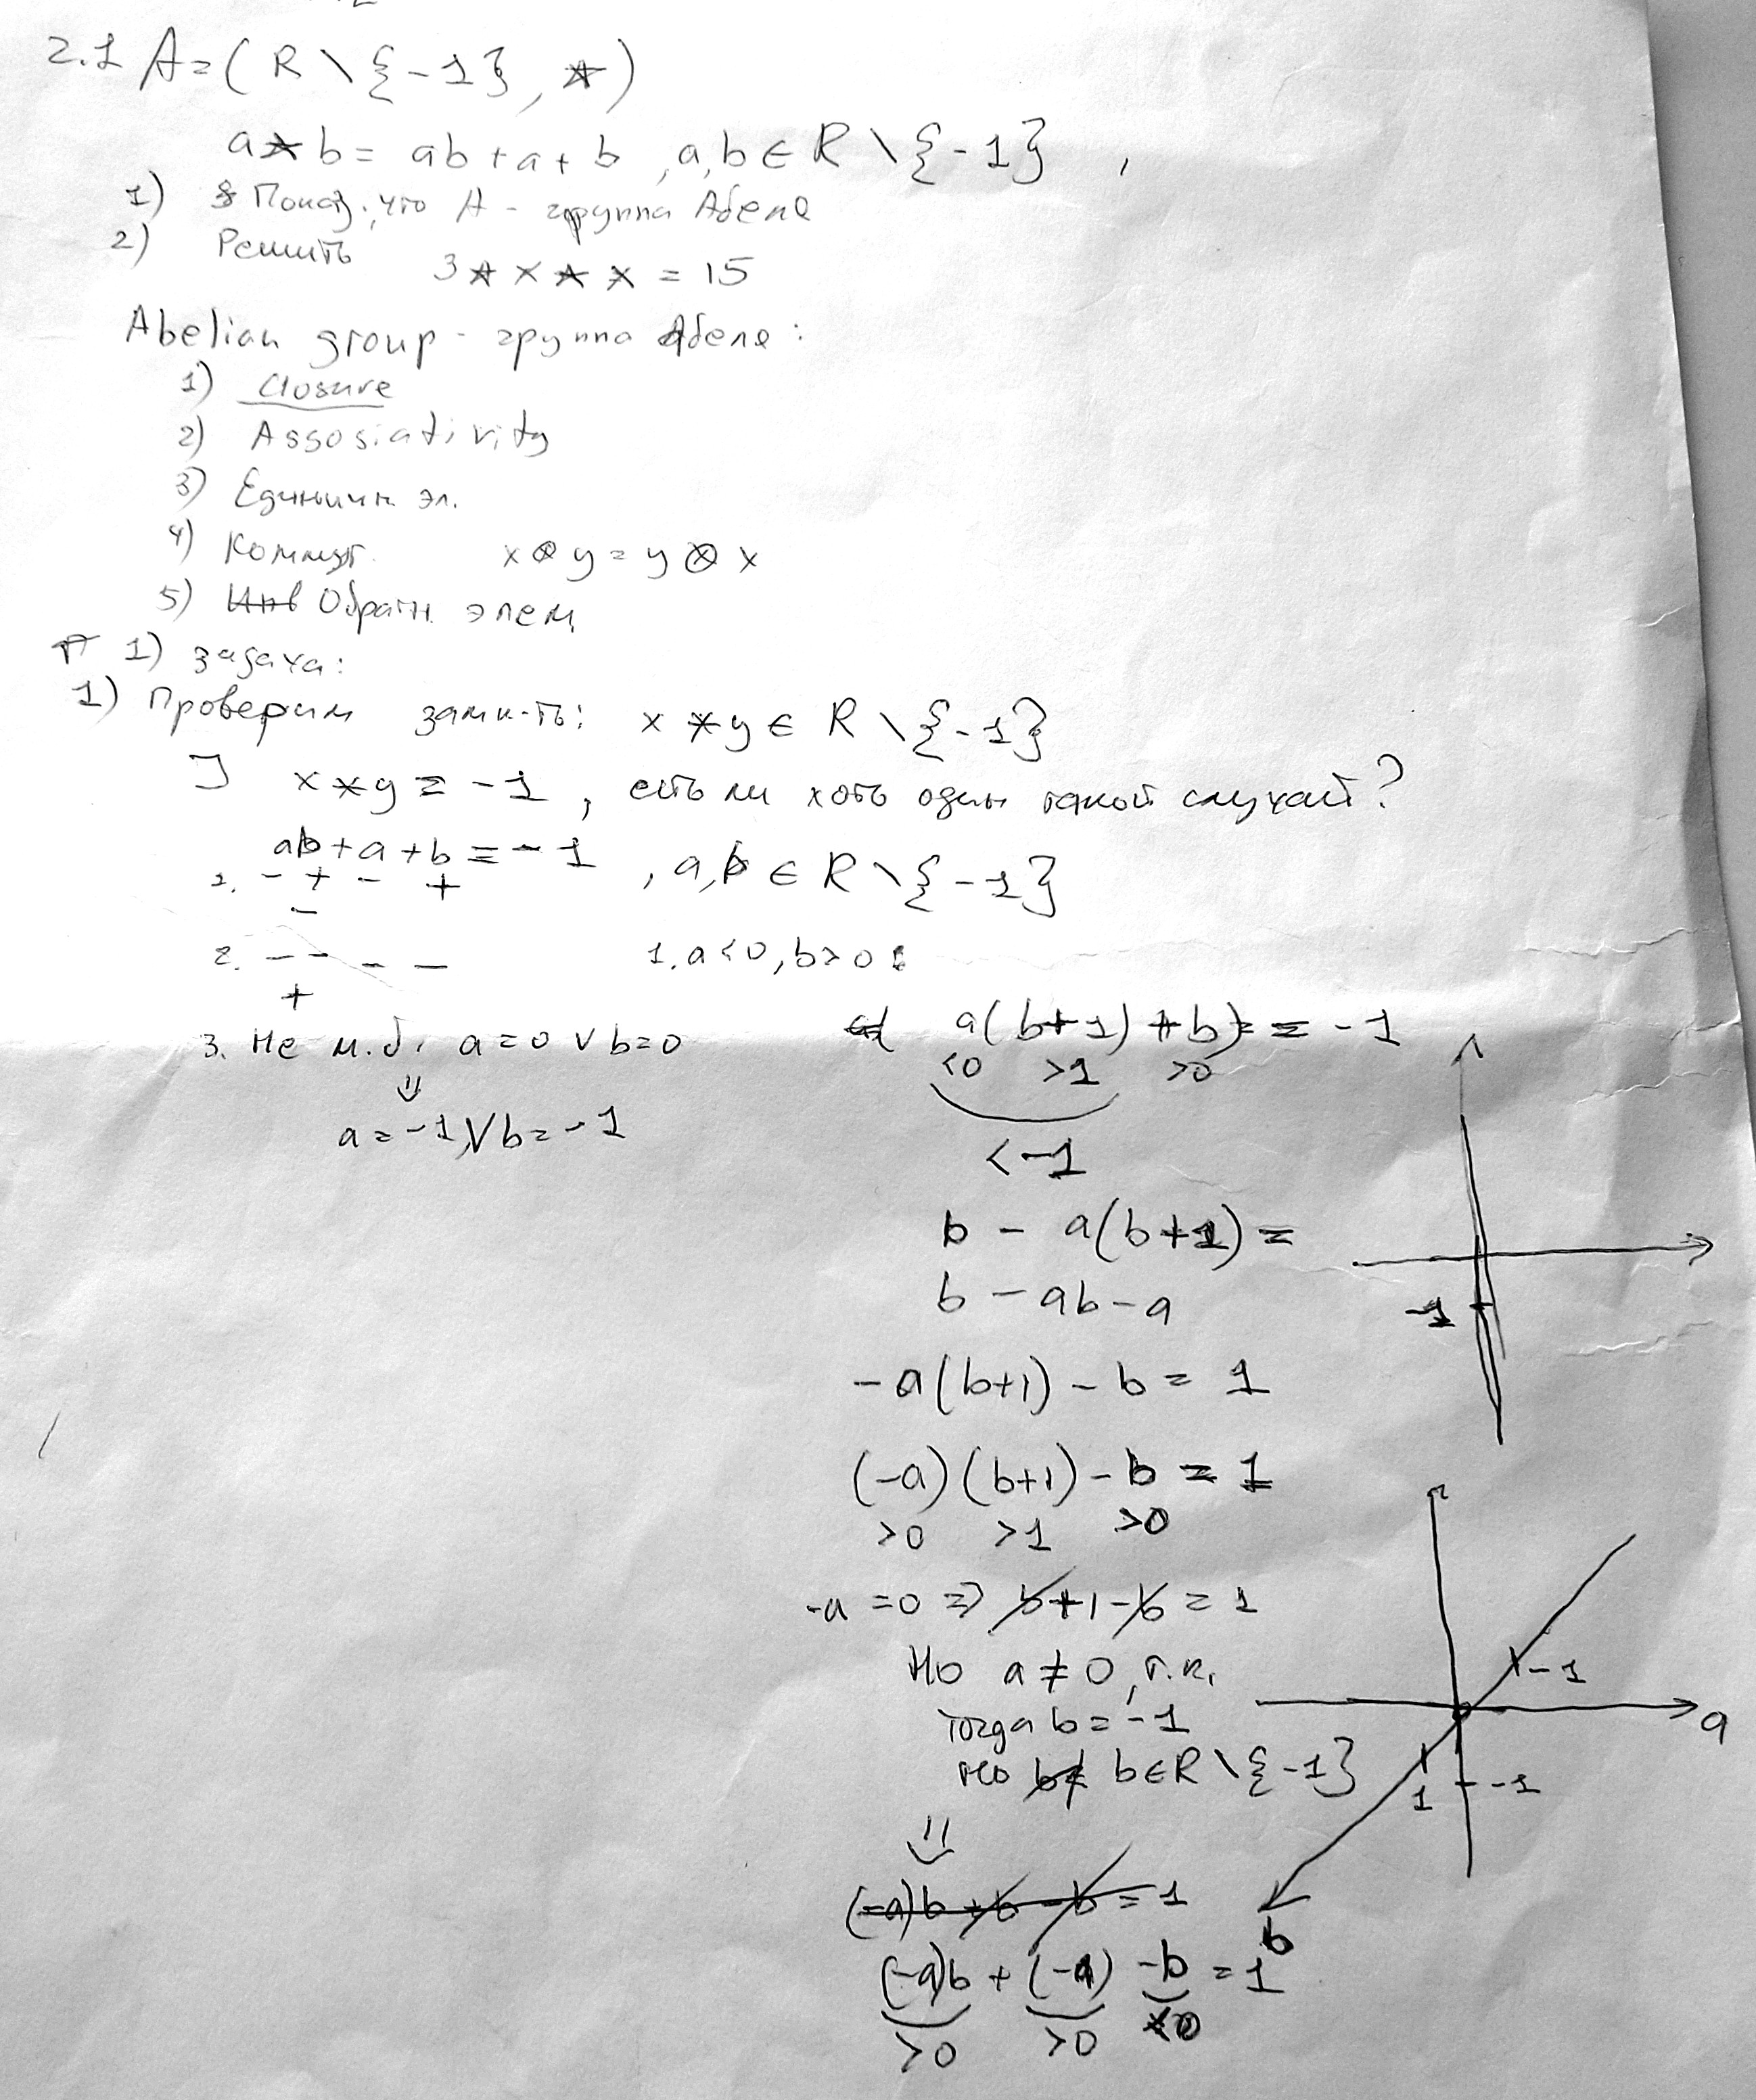 2.1 A=(R\{-1}, *)
a*b= ab+a+b, a,b∈R\{-1},
1) Показ., что A - группа Абеля
2) Решить 3*x*x=15
Abelian group - группа Абеля:
1) Closure
2) Assosiativity
3) Единичн эл.
4) Коммут. x⊗y=y⊗x
5) Инв Обратн. элем.
1) задача:
1) Проверим замк-ть: x*y∈R\{-1}
] x*y=-1, есть ли хоть один такой случай?
ab+a+b=-1, a,b∈R\{-1}
1. - + - +
-
2. - - - -
+
1. a<0, b>0:
3. Не м.б. a=0 ∨ b=0
⇓
a=-1 ∨ b=-1
a(b+1)+b)==-1
<0 >1 >0
<-1
b - a(b+1)=
b - ab - a
-1
-a(b+1)-b=1
(-a)(b+1)-b=1
>0 >1 >0
-a=0 => b+1-b=1
Но a≠0, т.к.
тогда b=-1
но b∉ b∈R\{-1}
⇓
-1
a
1 -1
b
(-a)b+b-b=1
(-a)b+(-a)-b=1
>0 >0 <0